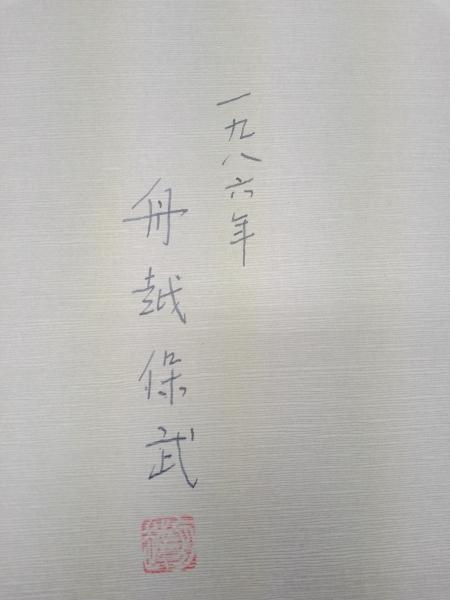 一九八六年
舟越保武